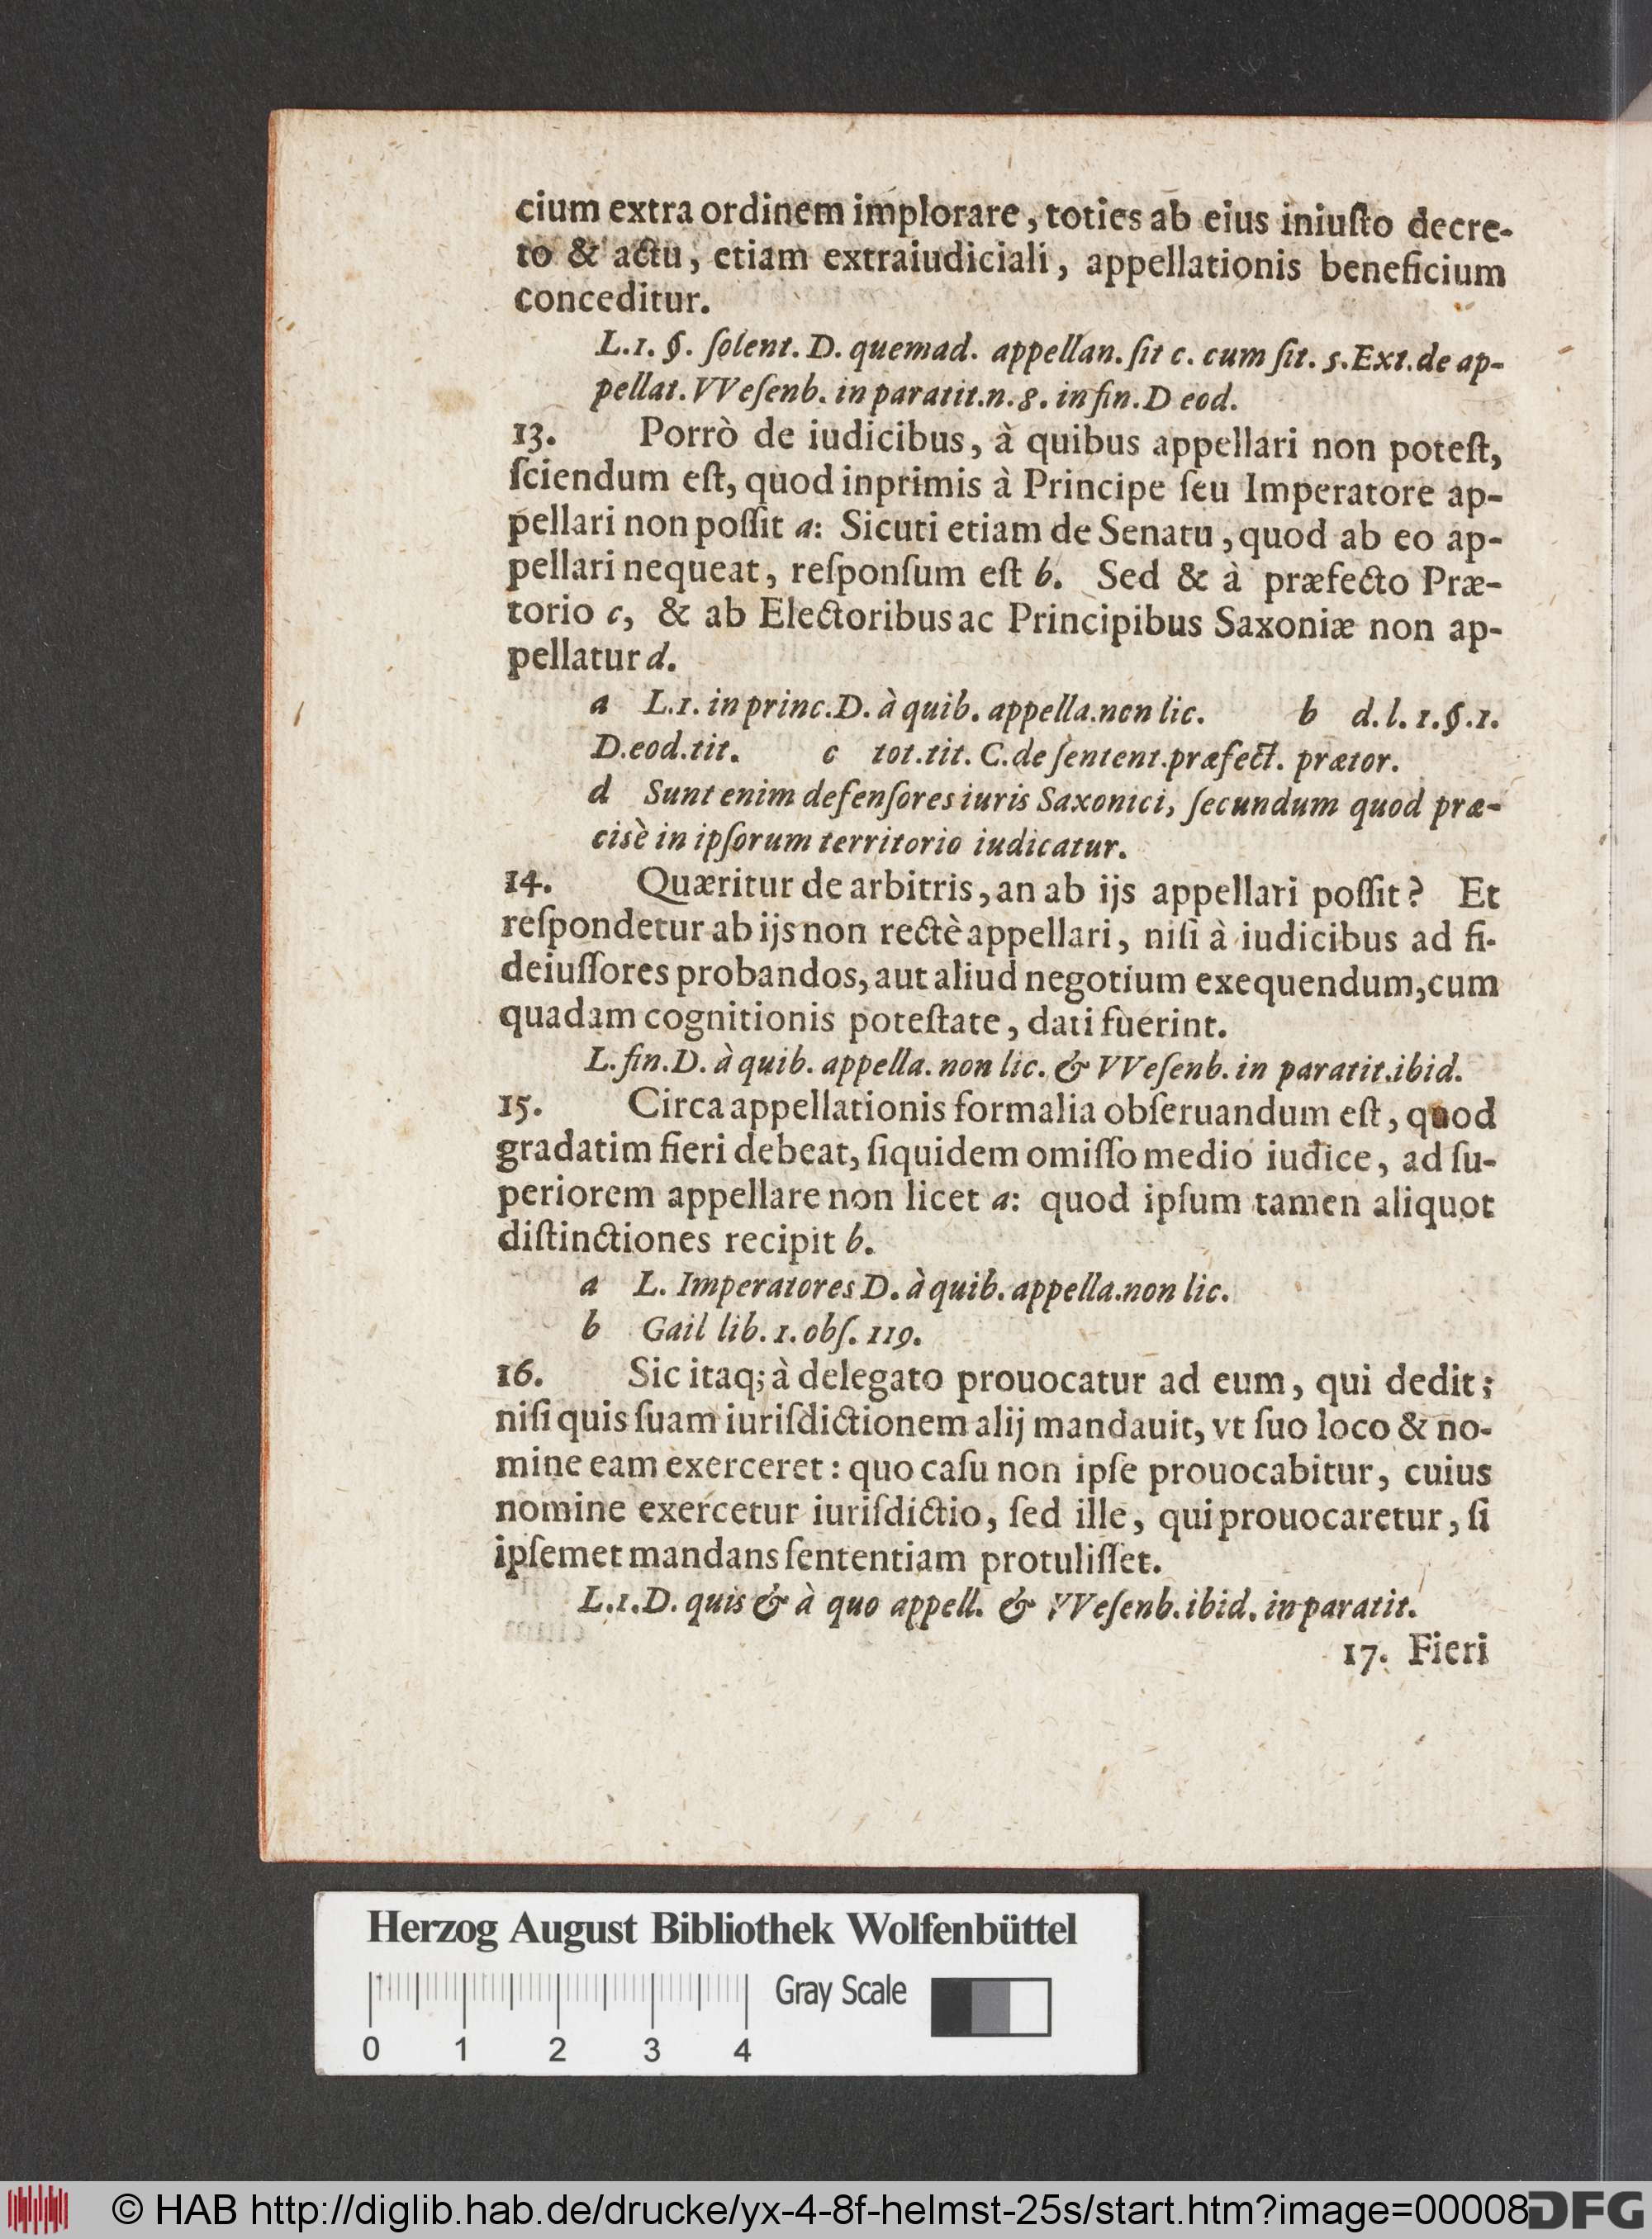 cium extra ordinem implorare, toties ab eius iniuſto decre-
to & actu, etiam extraiudiciali, appellationis beneficium
conceditur.
L.1. §. ſolent. D. quemad. appellan. ſit c. cum ſit. 5. Ext. de ap-
pellat. VVeſenb. in paratit. n. 8. in fin. D eod.
13. Porrò de iudicibus, à quibus appellari non poteſt,
ſciendum eſt, quod inprimis à Principe ſeu Imperatore ap-
pellari non poſſit a: Sicuti etiam de Senatu, quod ab eo ap-
pellari nequeat, reſponſum eſt b. Sed & à præfecto Præ-
torio c, & ab Electoribus ac Principibus Saxoniæ non ap-
pellatur d.
a L.1. in princ. D. à quib. appella. non lic. b d. l. 1. §. 1.
D. eod. tit. c tot. tit. C. de ſentent. præfect. prætor.
d Sunt enim defenſores iuris Saxonici, ſecundum quod præ-
cisè in ipſorum territorio iudicatur.
14. Quæritur de arbitris, an ab ijs appellari poſſit? Et
reſpondetur ab ijs non rectè appellari, niſi à iudicibus ad fi-
deiuſſores probandos, aut aliud negotium exequendum, cum
quadam cognitionis poteſtate, dati fuerint.
L. fin. D. à quib. appella. non lic. & VVeſenb. in paratit. ibid.
15. Circa appellationis formalia obſeruandum eſt, quod
gradatim fieri debeat, ſiquidem omiſſo medio iudice, ad ſu-
periorem appellare non licet a: quod ipſum tamen aliquot
diſtinctiones recipit b.
a L. Imperatores D. à quib. appella. non lic.
b Gail lib. 1. obſ. 119.
16. Sic itaq; à delegato prouocatur ad eum, qui dedit;
niſi quis ſuam iuriſdictionem alij mandauit, vt ſuo loco & no-
mine eam exerceret: quo caſu non ipſe prouocabitur, cuius
nomine exercetur iuriſdictio, ſed ille, qui prouocaretur, ſi
ipſemet mandans ſententiam protuliſſet.
L.1. D. quis & à quo appell. & VVeſenb. ibid. in paratit.
17. Fieri
Herzog August Bibliothek Wolfenbüttel
Gray Scale
0 1 2 3 4
© HAB http://diglib.hab.de/drucke/yx-4-8f-helmst-25s/start.htm?image=00008
DFG